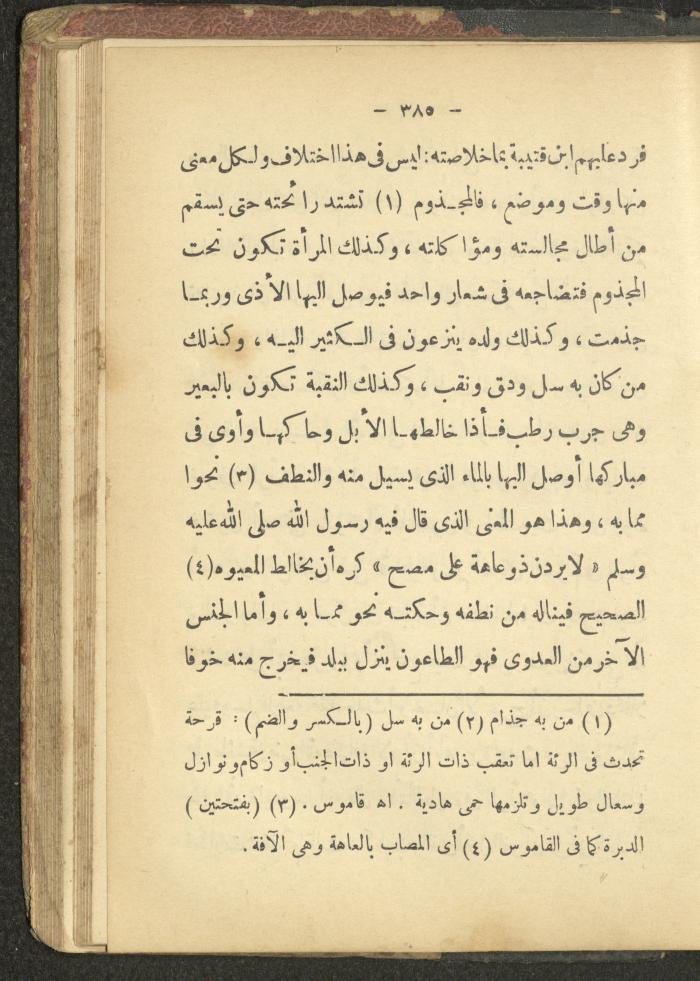 – ٣٨٥ –
فرد عليهم ابن قتيبة بما خلاصته: ليس فى هذا اختلاف ولكل معنى
منها وقت وموضع ، فالمجذوم (١) تشتد رائحته حتى يسقم
من أطال مجالسته ومؤاكلته ، وكذلك المرأة تكون تحت
المجذوم فتضاجعه فى شعار واحد فيوصل اليها الأذى وربما
جذمت ، وكذلك ولده ينزعون فى الكثير اليه ، وكذلك
من كان به سل ودق ونقب ، وكذلك النقبة تكون بالبعير
وهى جرب رطب فأذا خالطها الأبل وحاكها وأوى فى
مباركها أوصل اليها بالماء الذى يسيل منه والنطف (٣) نحوا
مما به ، وهذا هو المعنى الذى قال فيه رسول الله صلى الله عليه
وسلم « لا يردن ذو عاهة على مصح » كره أن يخالط المعيوه (٤)
الصحيح فيناله من نطفه وحكته نحو مما به ، وأما الجنس
الآخر من العدوى فهو الطاعون ينزل ببلد فيخرج منه خوفا
(١) من به جذام (٢) من به سل (بالكسر والضم) : قرحة
تحدث فى الرئة اما تعقب ذات الرئة او ذات الجنب أو زكام ونوازل
وسعال طويل وتلزمها حمى هادية . اه قاموس . (٣) (بفتحتين )
الدبرة كما فى القاموس (٤) أى المصاب بالعاهة وهى الآفة .